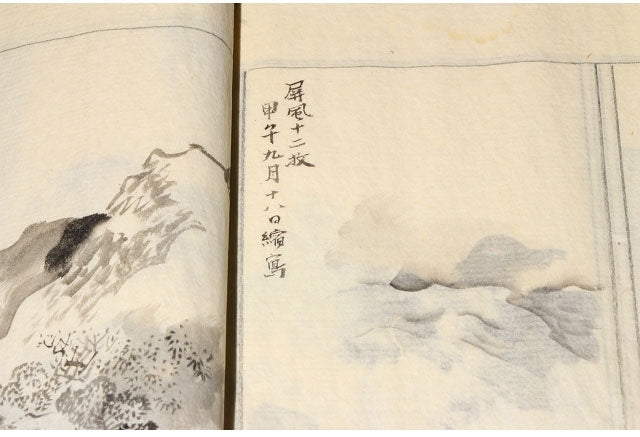 屏風十二枚
甲午九月十八日縮寫